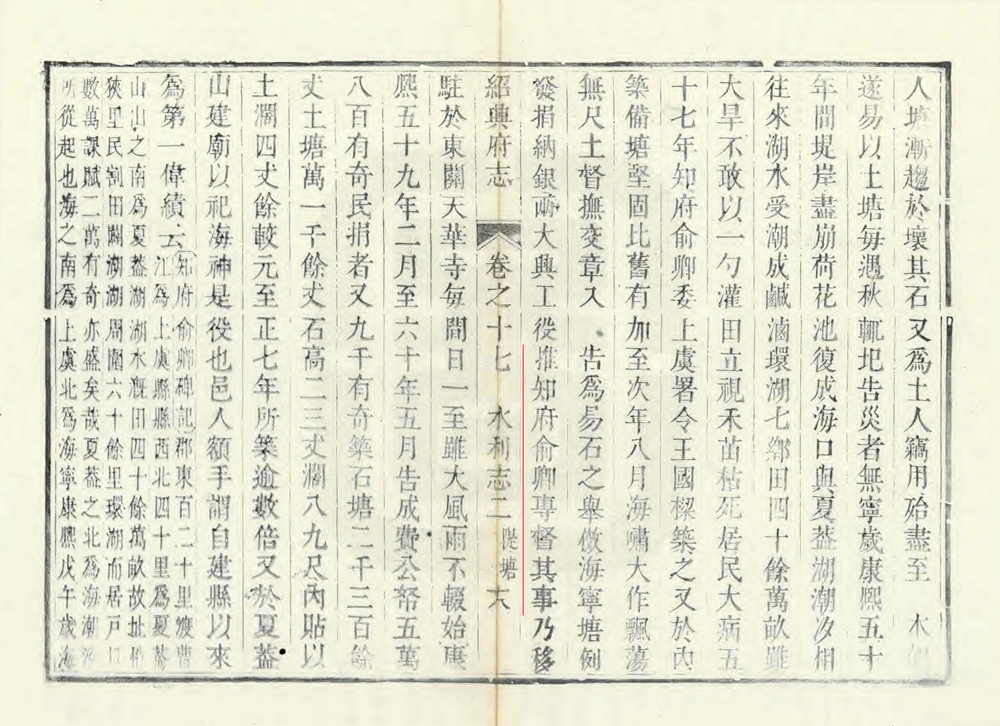 人塘漸趨於壞其石又爲土人竊用殆盡至 木
遂易以土塘每遇秋輒圯告災者無寧歲康熙五十
年間堤岸盡崩荷花池復成海口與夏葢湖潮汐相
往來湖水受潮成鹹滷環湖七鄉田四十餘萬畝雖
大旱不敢以一勺灌田立視禾苗枯死居民大病五
十七年知府俞卿委上虞署令王國樑築之又於內
築備塘堅固比舊有加至次年八月海嘯大作飄蕩
無尺土督撫交章入 告爲易石之舉倣海寧塘例
發捐納銀兩大興工役推知府俞卿專督其事乃移
紹興府志 卷之十七 水利志二 隄塘 六
駐於東關天華寺每間日一至雖大風雨不輟始康
熙五十九年二月至六十年五月告成費公帑五萬
八百有奇民捐者又九千有奇築石塘二千三百餘
丈土塘萬一千餘丈石高二三丈濶八九尺內貼以
土濶四丈餘較元至正七年所築逾數倍又於夏葢
山建廟以祀海神是役也邑人額手謂自建縣以來
爲第一偉績云 知府俞卿碑記郡東百二十里渡曹
江爲上虞縣縣西北四十里爲夏葢
山山之南爲夏葢湖湖水漑田四十餘萬畝故址
狹里民割田闢湖湖周圍六十餘里環湖而居戶口
數萬課賦二萬有奇亦盛矣哉夏葢之北爲海潮汐
所從起也海之南爲上虞北爲海寧康熙戊午歲海